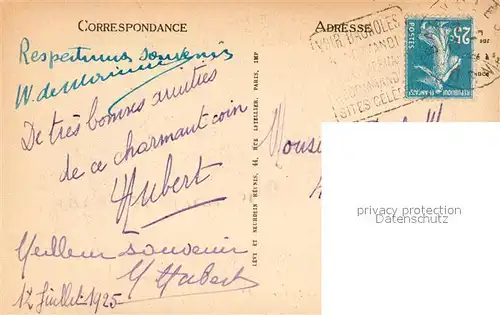 CORRESPONDANCE
ADRESSE
Respectueux souvenirs
W. de
De très bonnes amitiés
de ce charmant coin
Hubert
Meilleur souvenir
Hubert
12 Juillet 1925
LÉVY ET NEURDEIN RÉUNIS, 44, RUE LETELLIER, PARIS, IMP
SITES
25c
POSTES
RÉPUBLIQUE FRANÇAISE
privacy protection
Datenschutz